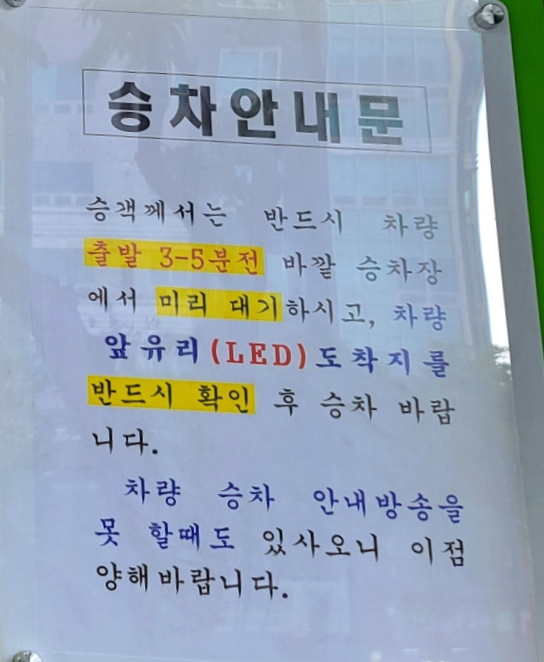 승차안내문
승객께서는 반드시 차량
출발 3-5분전 바깥 승차장
에서 미리 대기하시고, 차량
앞유리(LED)도착지를
반드시 확인 후 승차 바랍
니다.
차량 승차 안내방송을
못 할때도 있사오니 이점
양해바랍니다.